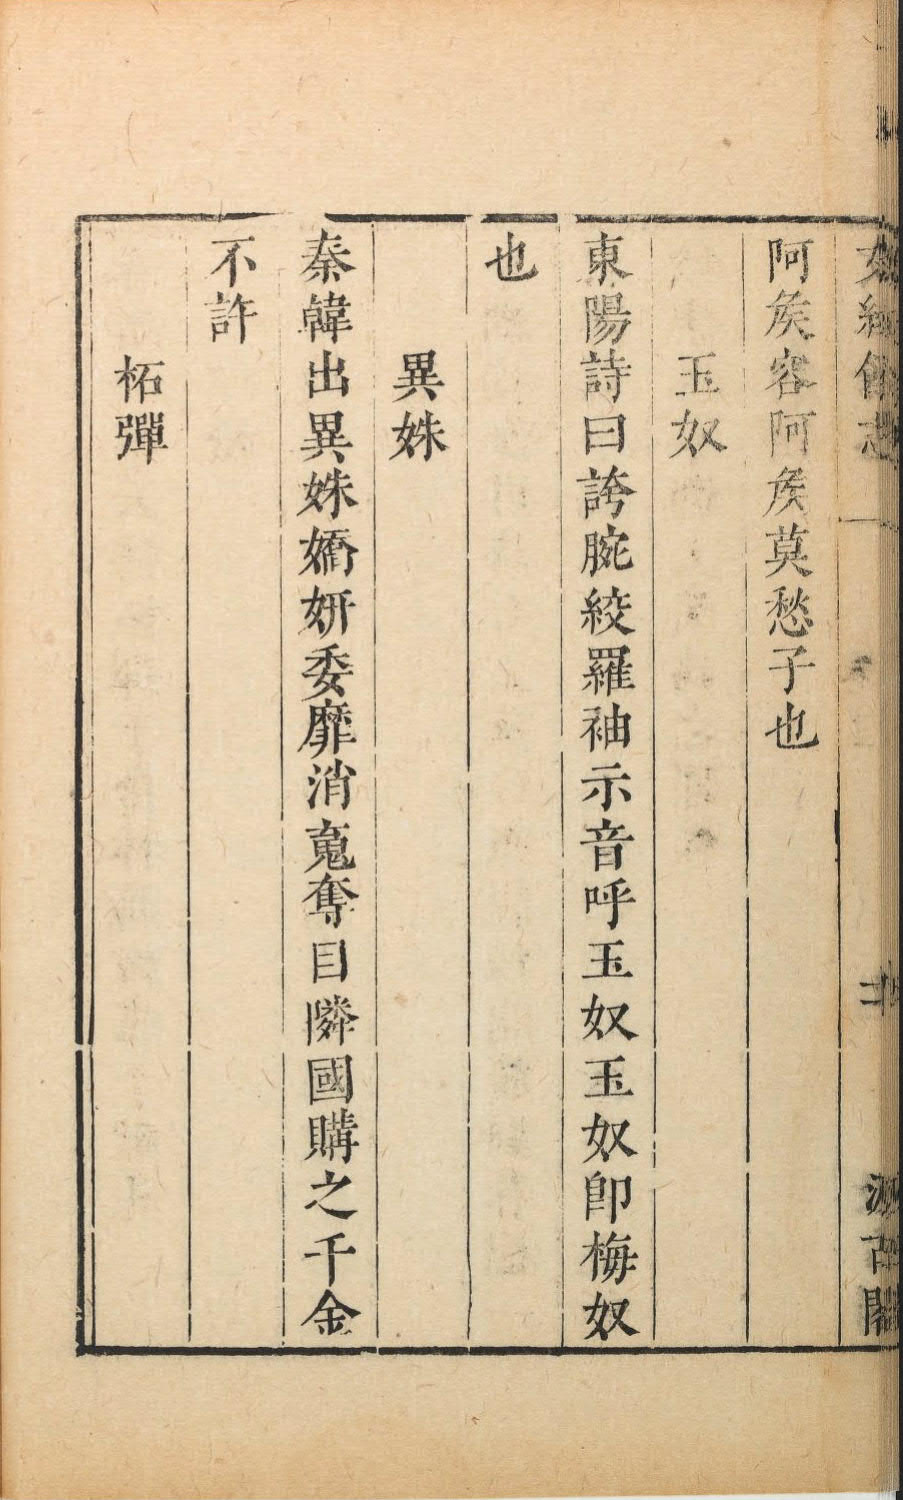 阿矦容阿矦莫愁子也
玉奴
東陽詩曰誇腕絞羅袖示音呼玉奴玉奴卽梅奴
也
異姝
秦韓出異姝嬌妍委靡消䰟奪目隣國購之千金
不許
柘彈